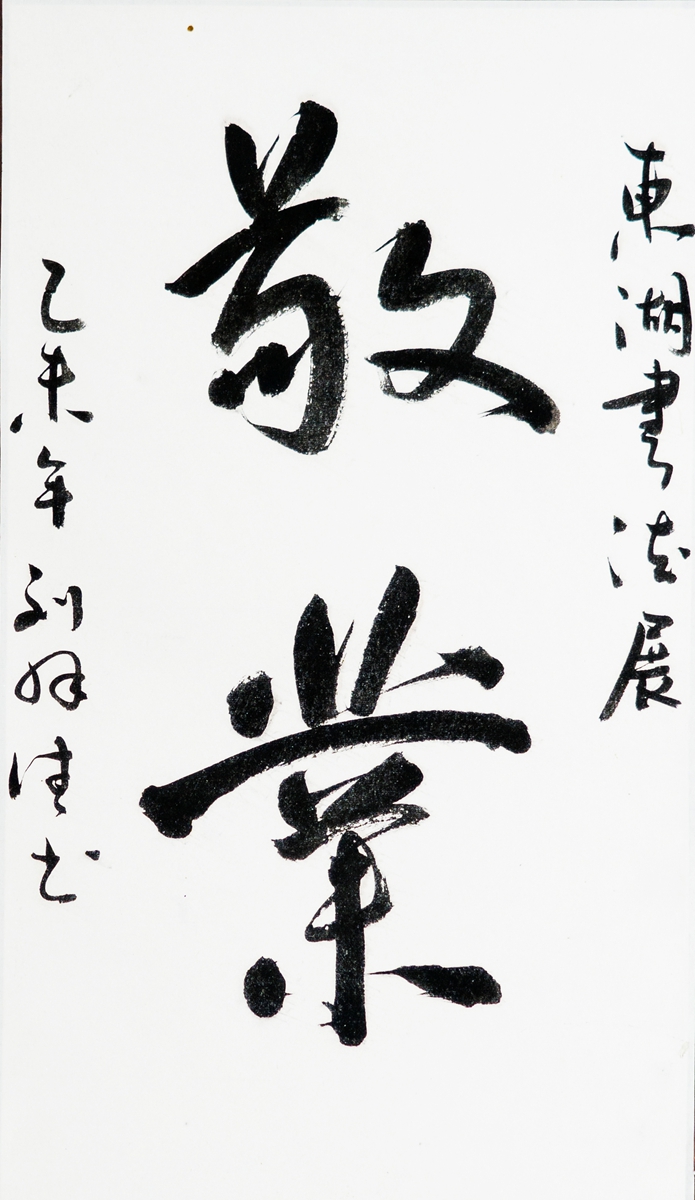 東湖書法展
敬業
乙未年刘
书